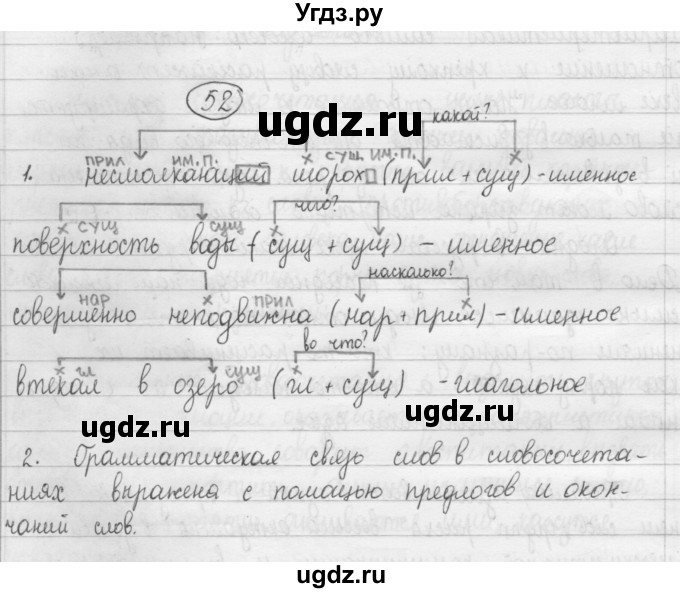 Угдз.ру
52
ugdz.ru ugdz.ru
какой?
прил им.п. х сущ им.п. х
1. несмолкающий шорох (прил + сущ) - именное
х сущ сущ х чего?
поверхность воды (сущ + сущ) - именное
нар х прил насколько? х
совершенно неподвижна (нар + прил) - именное
х гл сущ х во что?
втекал в озеро (гл + сущ) - глагольное
ugdz.ru ugdz.ru
2. Грамматическая связь слов в словосочета-
ниях выражена с помощью предлогов и окон-
чаний слов.
ugdz.ru